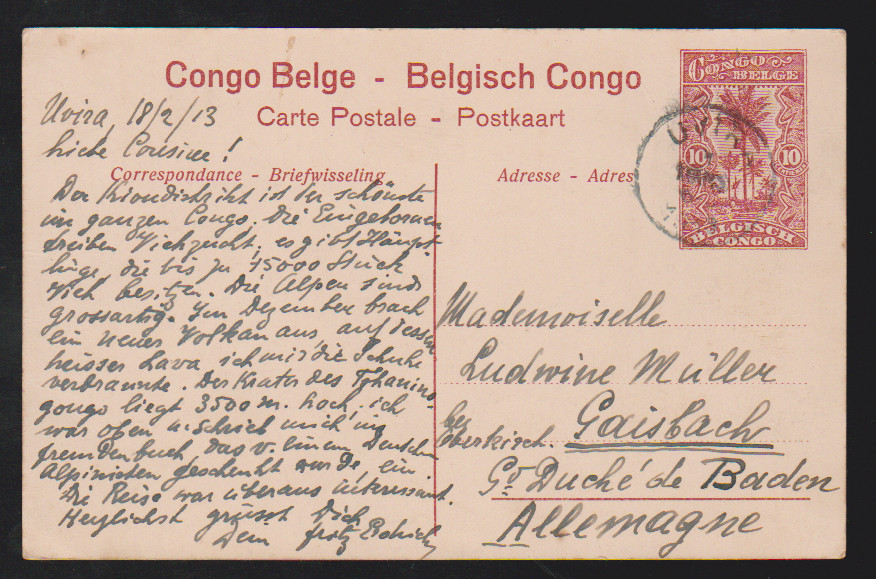 Congo Belge - Belgisch Congo
Carte Postale - Postkaart
Correspondance - Briefwisseling
Adresse - Adres
CONGO BELGE
10 10
BELGISCH CONGO
UVIRA
Uvira, 18/2/13
Liebe Cousine!
Der Kiondistrikt ist der schönste
im ganzen Congo. Die Eingebornen
treiben Viehzucht, es gibt Häupt-
linge, die bis zu 15000 Stück
Vieh besitzen. Die Alpen sind
grossartig. Im Dezember brach
ein neuer Vulkan aus, auf dessen
heisser Lava ich mir die Schuhe
verbrannte. Der Krater des Tshanino-
gongo liegt 3500 m. hoch, ich
war oben u. schrieb mich ins
Fremdenbuch, das v. einem Deutschen
Alpinisten geschenkt wurde, ein.
Die Reise war überaus interessant.
Herzlichst grüsst Dich
Dein Fritz
Mademoiselle
Ludwine Müller
Gaisbach
bei Oberkirch.
Gd Duché de Baden
Allemagne